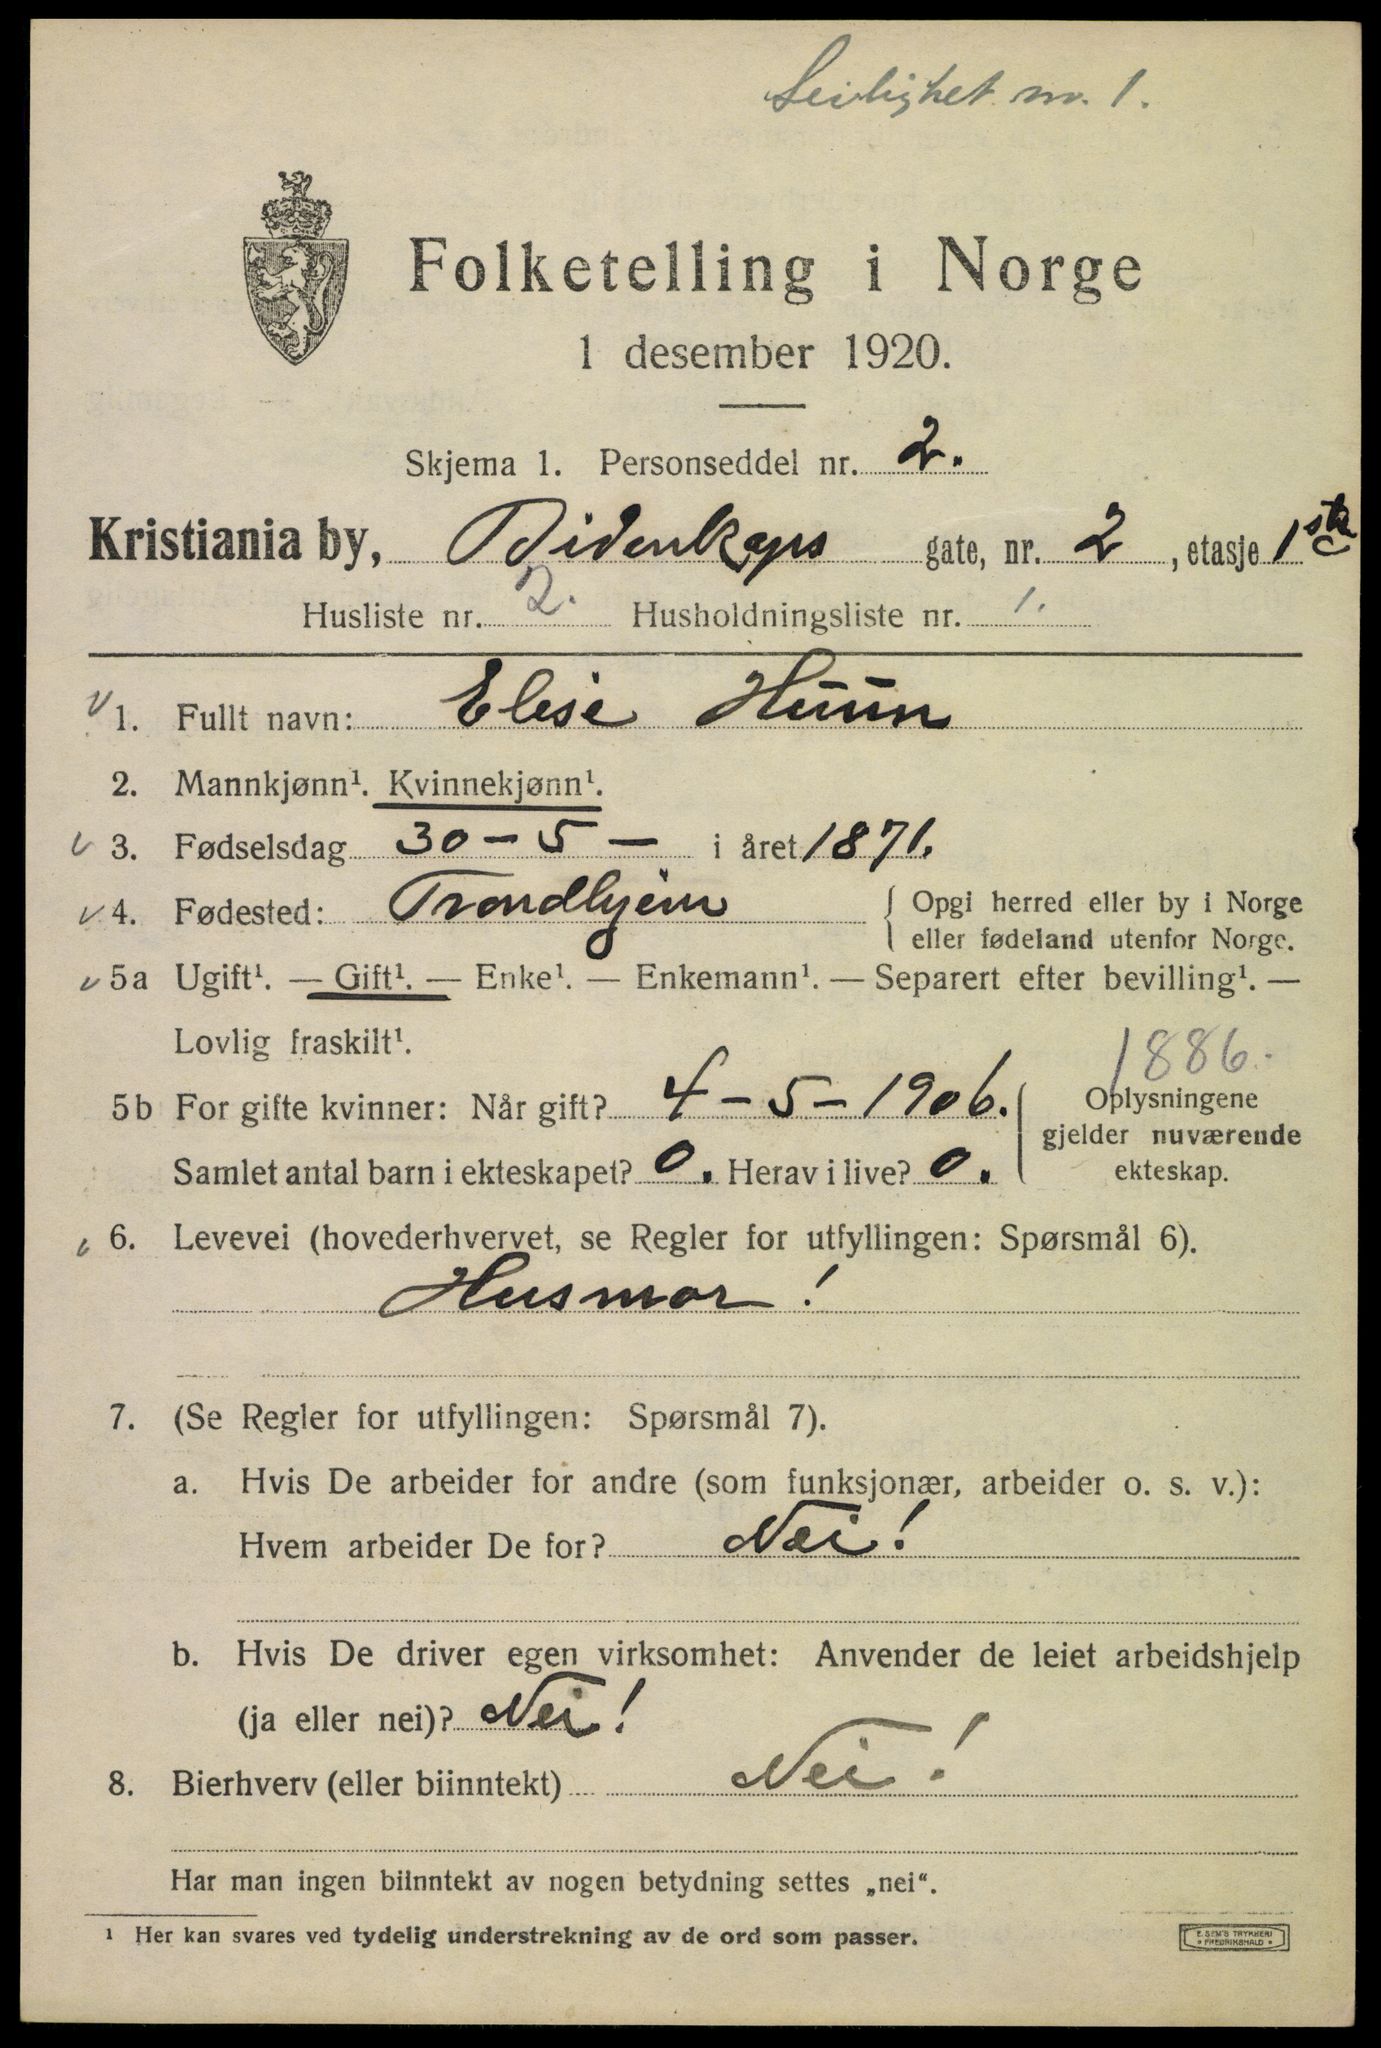 Leilighet nr. 1.
Folketelling i Norge
1 desember 1920.
Skjema 1. Personseddel nr. 2.
Kristiania by, Bidenkaps gate, nr. 2, etasje 1 stk
Husliste nr. 2. Husholdningsliste nr. 1.
1. Fullt navn: Elise Huun
2. Mannkjønn¹. Kvinnekjønn¹.
3. Fødselsdag 30 - 5 - i året 1871.
4. Fødested: Trondhjem { Opgi herred eller by i Norge
eller fødeland utenfor Norge.
5a Ugift¹. — Gift¹. — Enke¹. — Enkemann¹. — Separert efter bevilling¹. —
Lovlig fraskilt¹.
1886.
5b For gifte kvinner: Når gift? 4 - 5 - 1906. { Oplysningene
gjelder nuværende
Samlet antal barn i ekteskapet? 0. Herav i live? 0. ekteskap.
6. Levevei (hovederhvervet, se Regler for utfyllingen: Spørsmål 6).
Husmor!
7. (Se Regler for utfyllingen: Spørsmål 7).
a. Hvis De arbeider for andre (som funksjonær, arbeider o. s. v.):
Hvem arbeider De for? Nei!
b. Hvis De driver egen virksomhet: Anvender de leiet arbeidshjelp
(ja eller nei)? Nei!
8. Bierhverv (eller biinntekt) Nei!
Har man ingen biinntekt av nogen betydning settes „nei“.
¹ Her kan svares ved tydelig understrekning av de ord som passer.
E. SEM'S TRYKKERI
FREDRIKSHALD